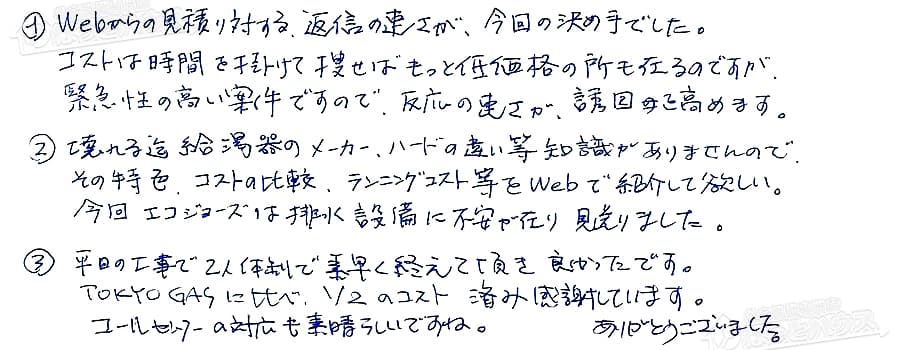 ① Webからの見積り対する、返信の速さが、今回の決め手でした。
コストは時間を掛けて捜せばもっと低価格の所も在るのですが、
緊急性の高い案件ですので、反応の速さが、誘因度を高めます。
② 壊れる迄給湯器のメーカー、ハードの違い等知識がありませんので、
その特色、コストの比較、ランニングコスト等をWebで紹介して欲しい。
今回エコジョーズは排水設備に不安が在り見送りました。
③ 平日の工事で2人体制で素早く終えて頂き良かったです。
TOKYO GASに比べ、1/2のコスト済み感謝しています。
コールセンターの対応も素晴らしいですね。 ありがとうございました。